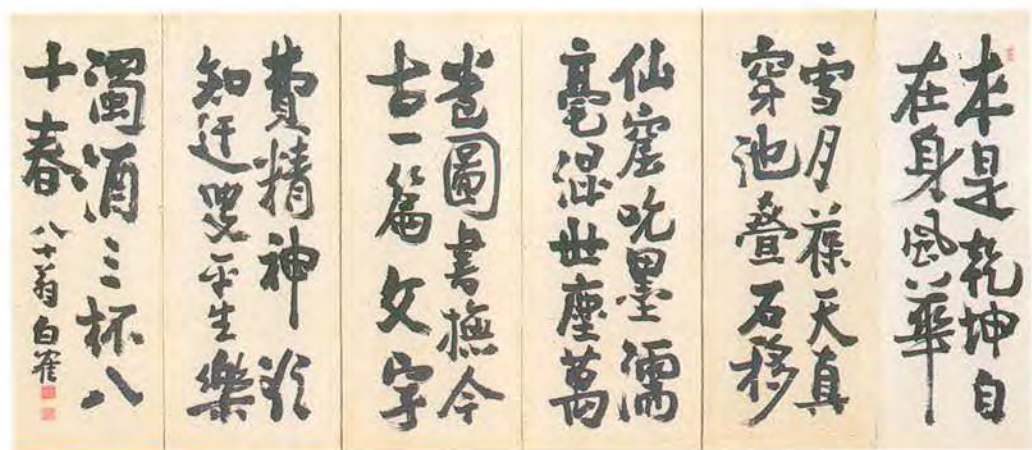 本是乾坤自
在身風華
雪月葆天真
穿池叠石移
仙窟吮墨濡
毫混世塵萬
卷圖書撫今
古一篇文字
費精神欲
知迂叟平生樂
濁酒三杯八
十春 八十翁白